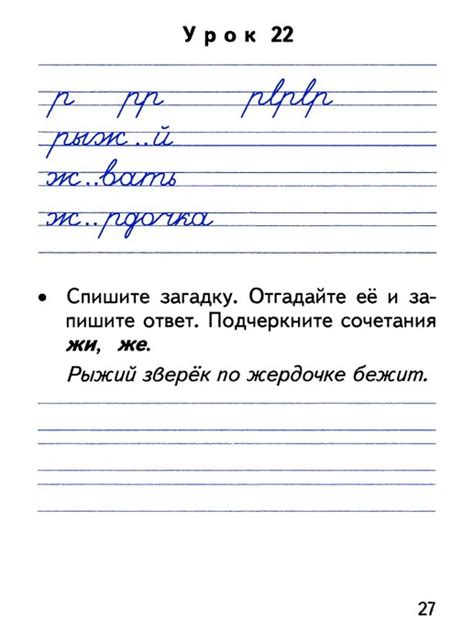 Урок 22
р рр рврвр
рыж..й
ж..вать
ж..рдочка
• Спишите загадку. Отгадайте её и за-
пишите ответ. Подчеркните сочетания
жи, же.
Рыжий зверёк по жердочке бежит.
27